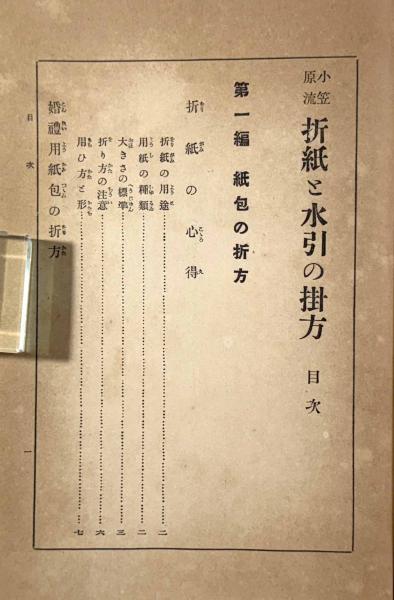 小笠原流 折紙と水引の掛方 目次
第一編 紙包の折方
折紙の心得
折紙の用途……二
用紙の種類……二
大きさの標準……三
折り方の注意……六
用ひ方と形……七
婚禮用紙包の折方
目次 一